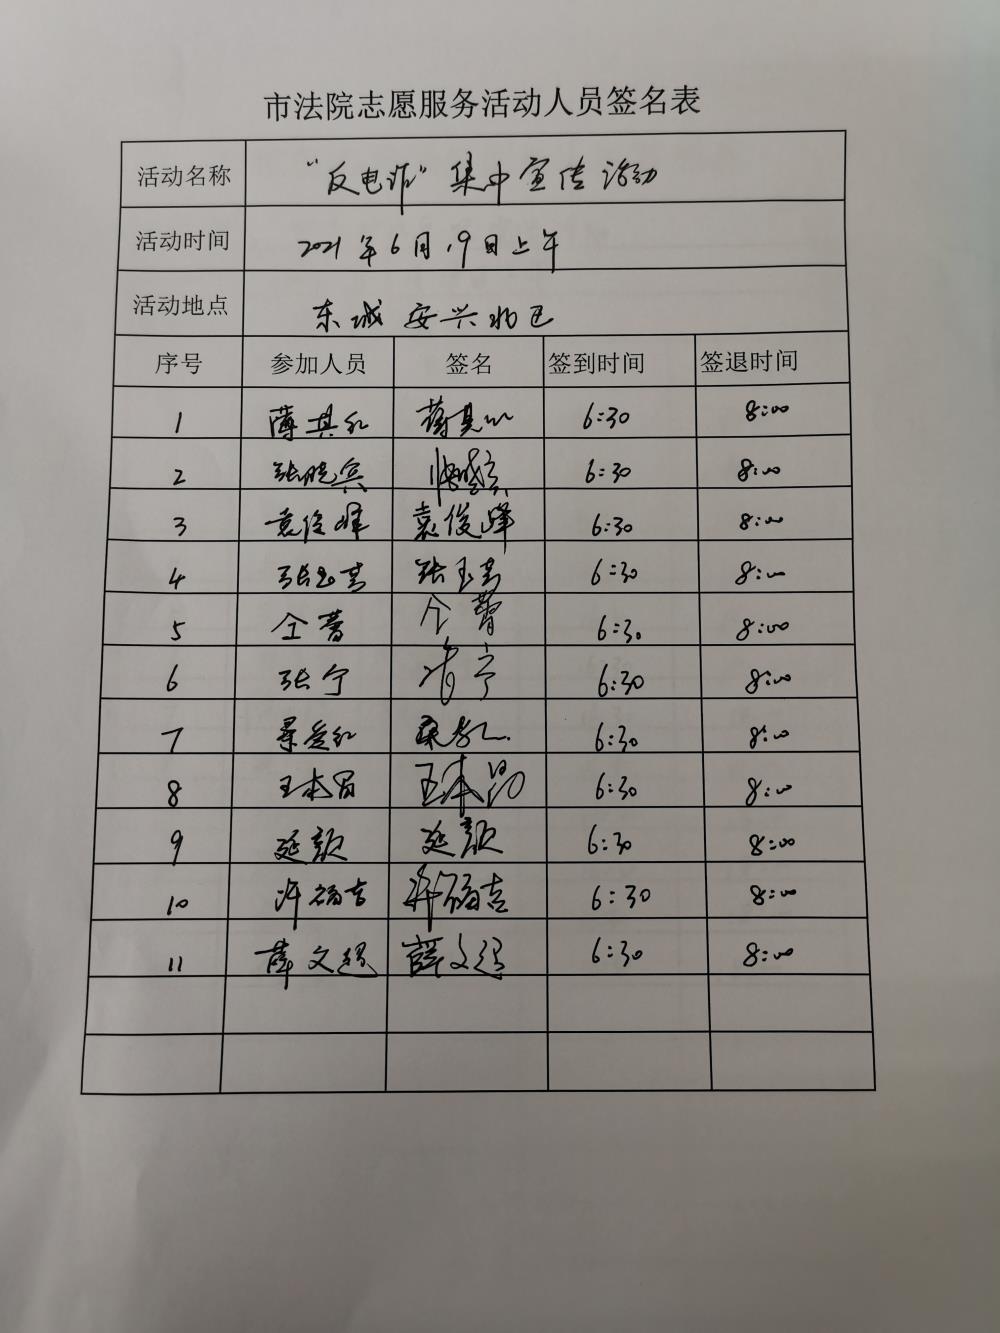 市法院志愿服务活动人员签名表
活动名称 “反电诈”集中宣传活动
活动时间 2021年6月19日上午
活动地点 东城安兴北巴
序号 参加人员 签名 签到时间 签退时间
1 薄其红 薄其红 6:30 8:00
2 张晓宾 6:30 8:00
3 袁俊峰 袁俊峰 6:30 8:00
4 张玉芸 张玉芸 6:30 8:00
5 仝蕾 仝蕾 6:30 8:00
6 张宁 宁 6:30 8:00
7 爱红 6:30 8:00
8 王本昌 王本昌 6:30 8:00
9 延颜 延颜 6:30 8:00
10 许福吉 许福吉 6:30 8:00
11 薛文超 薛文超 6:30 8:00